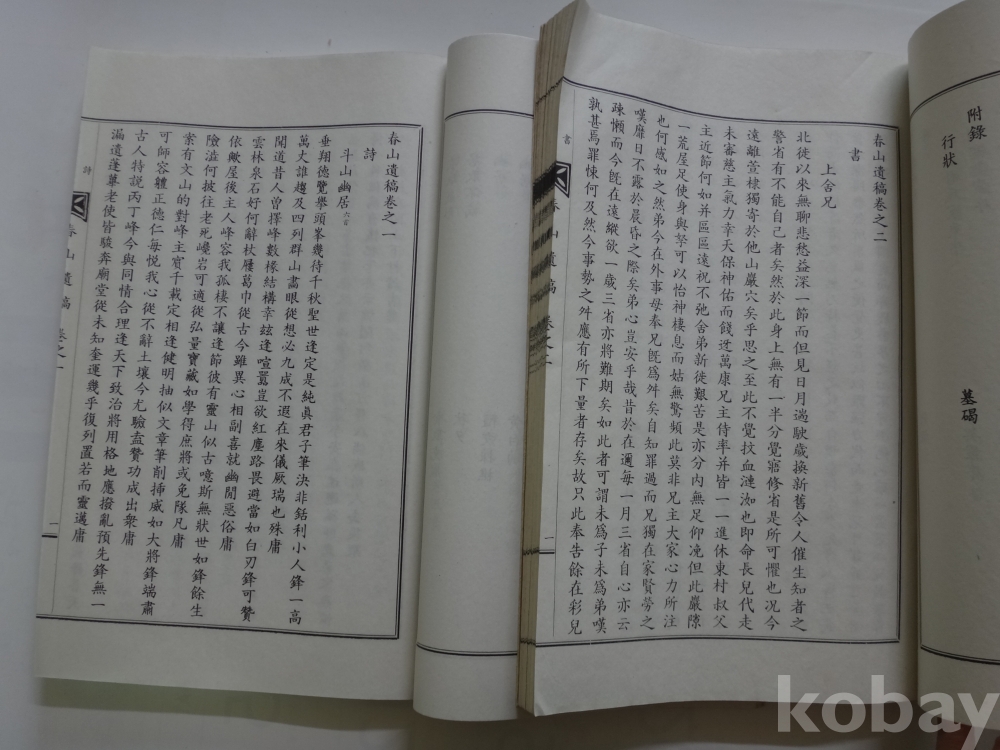 附錄
行狀
墓碣
春山遺稿卷之二
書
上舍兄
北徙以來無聊悲愁益深一節而但見日月遄駛歲換新舊令人催生知者之
警省有不能自己者矣然於此身上無有一半分覺寤修省是所可懼也况今
遠離萱棣獨寄於他山巖穴矣乎思之至此不覺抆血漣洳也即命長兒代走
未審慈主氣力幸天保神佑而餞迓萬康兄主侍率并皆一一進休東村叔父
主近節何如并區區遠祝不弛舍弟新徙艱苦是亦分内無足仰凂但此巖隙
一荒屋足使身與孥可以怡神棲息而姑無驚頻此莫非兄主大家心力所注
也何感如之然弟今在外事母奉兄旣爲舛矣自知罪過而兄獨在家賢勞之
嘆靡日不露於晨昏之際矣弟心豈安乎哉昔於在邇每一月三省自心亦云
疎懶而今旣在遠縱欲一歲三省亦將難期矣如此者可謂未爲子未爲弟嘆
孰甚焉罪悚何及然今事勢之舛應有所下量者存矣故只此奉告餘在彩兒
書
春山遺稿 卷之二
一
春山遺稿卷之一
詩
斗山幽居 六言
垂翔德覺擧頭峯幾待千秋聖世逢定是純眞君子筆決非銛利小人鋒一高
萬丈誰趨及四列群山盡眼從想必九成不遐在來儀厥瑞也殊庸
聞道昔人曾擇峰數椽結構幸玆逢喧囂豈欲紅塵路畏避當如白刃鋒可贊
雲林泉石好何辭杖屨葛巾從古今雖異心相副喜就幽閒惡俗庸
依歟屋後主人峰容我孤棲不讓逢節彼有靈山似古噫斯無狀世如鋒餘生
險溢何披往老死巉岩可適從弘量寶藏如學得庶將或免隊凡庸
案有文山的對峰主賓千載定相逢健明抽似文章筆削挿威如大將鋒端肅
可師容體正德仁每悅我心從不辭土壤今尤驗盍贊功成出衆庸
古人特說丙丁峰今與同情合理逢天下致治將用格地應撥亂預先鋒無一
漏遺蓬蓽老使皆駿奔廟堂從未知奎運幾乎復列置若而靈邁庸
詩
春山遺稿 卷之一
一
kobay